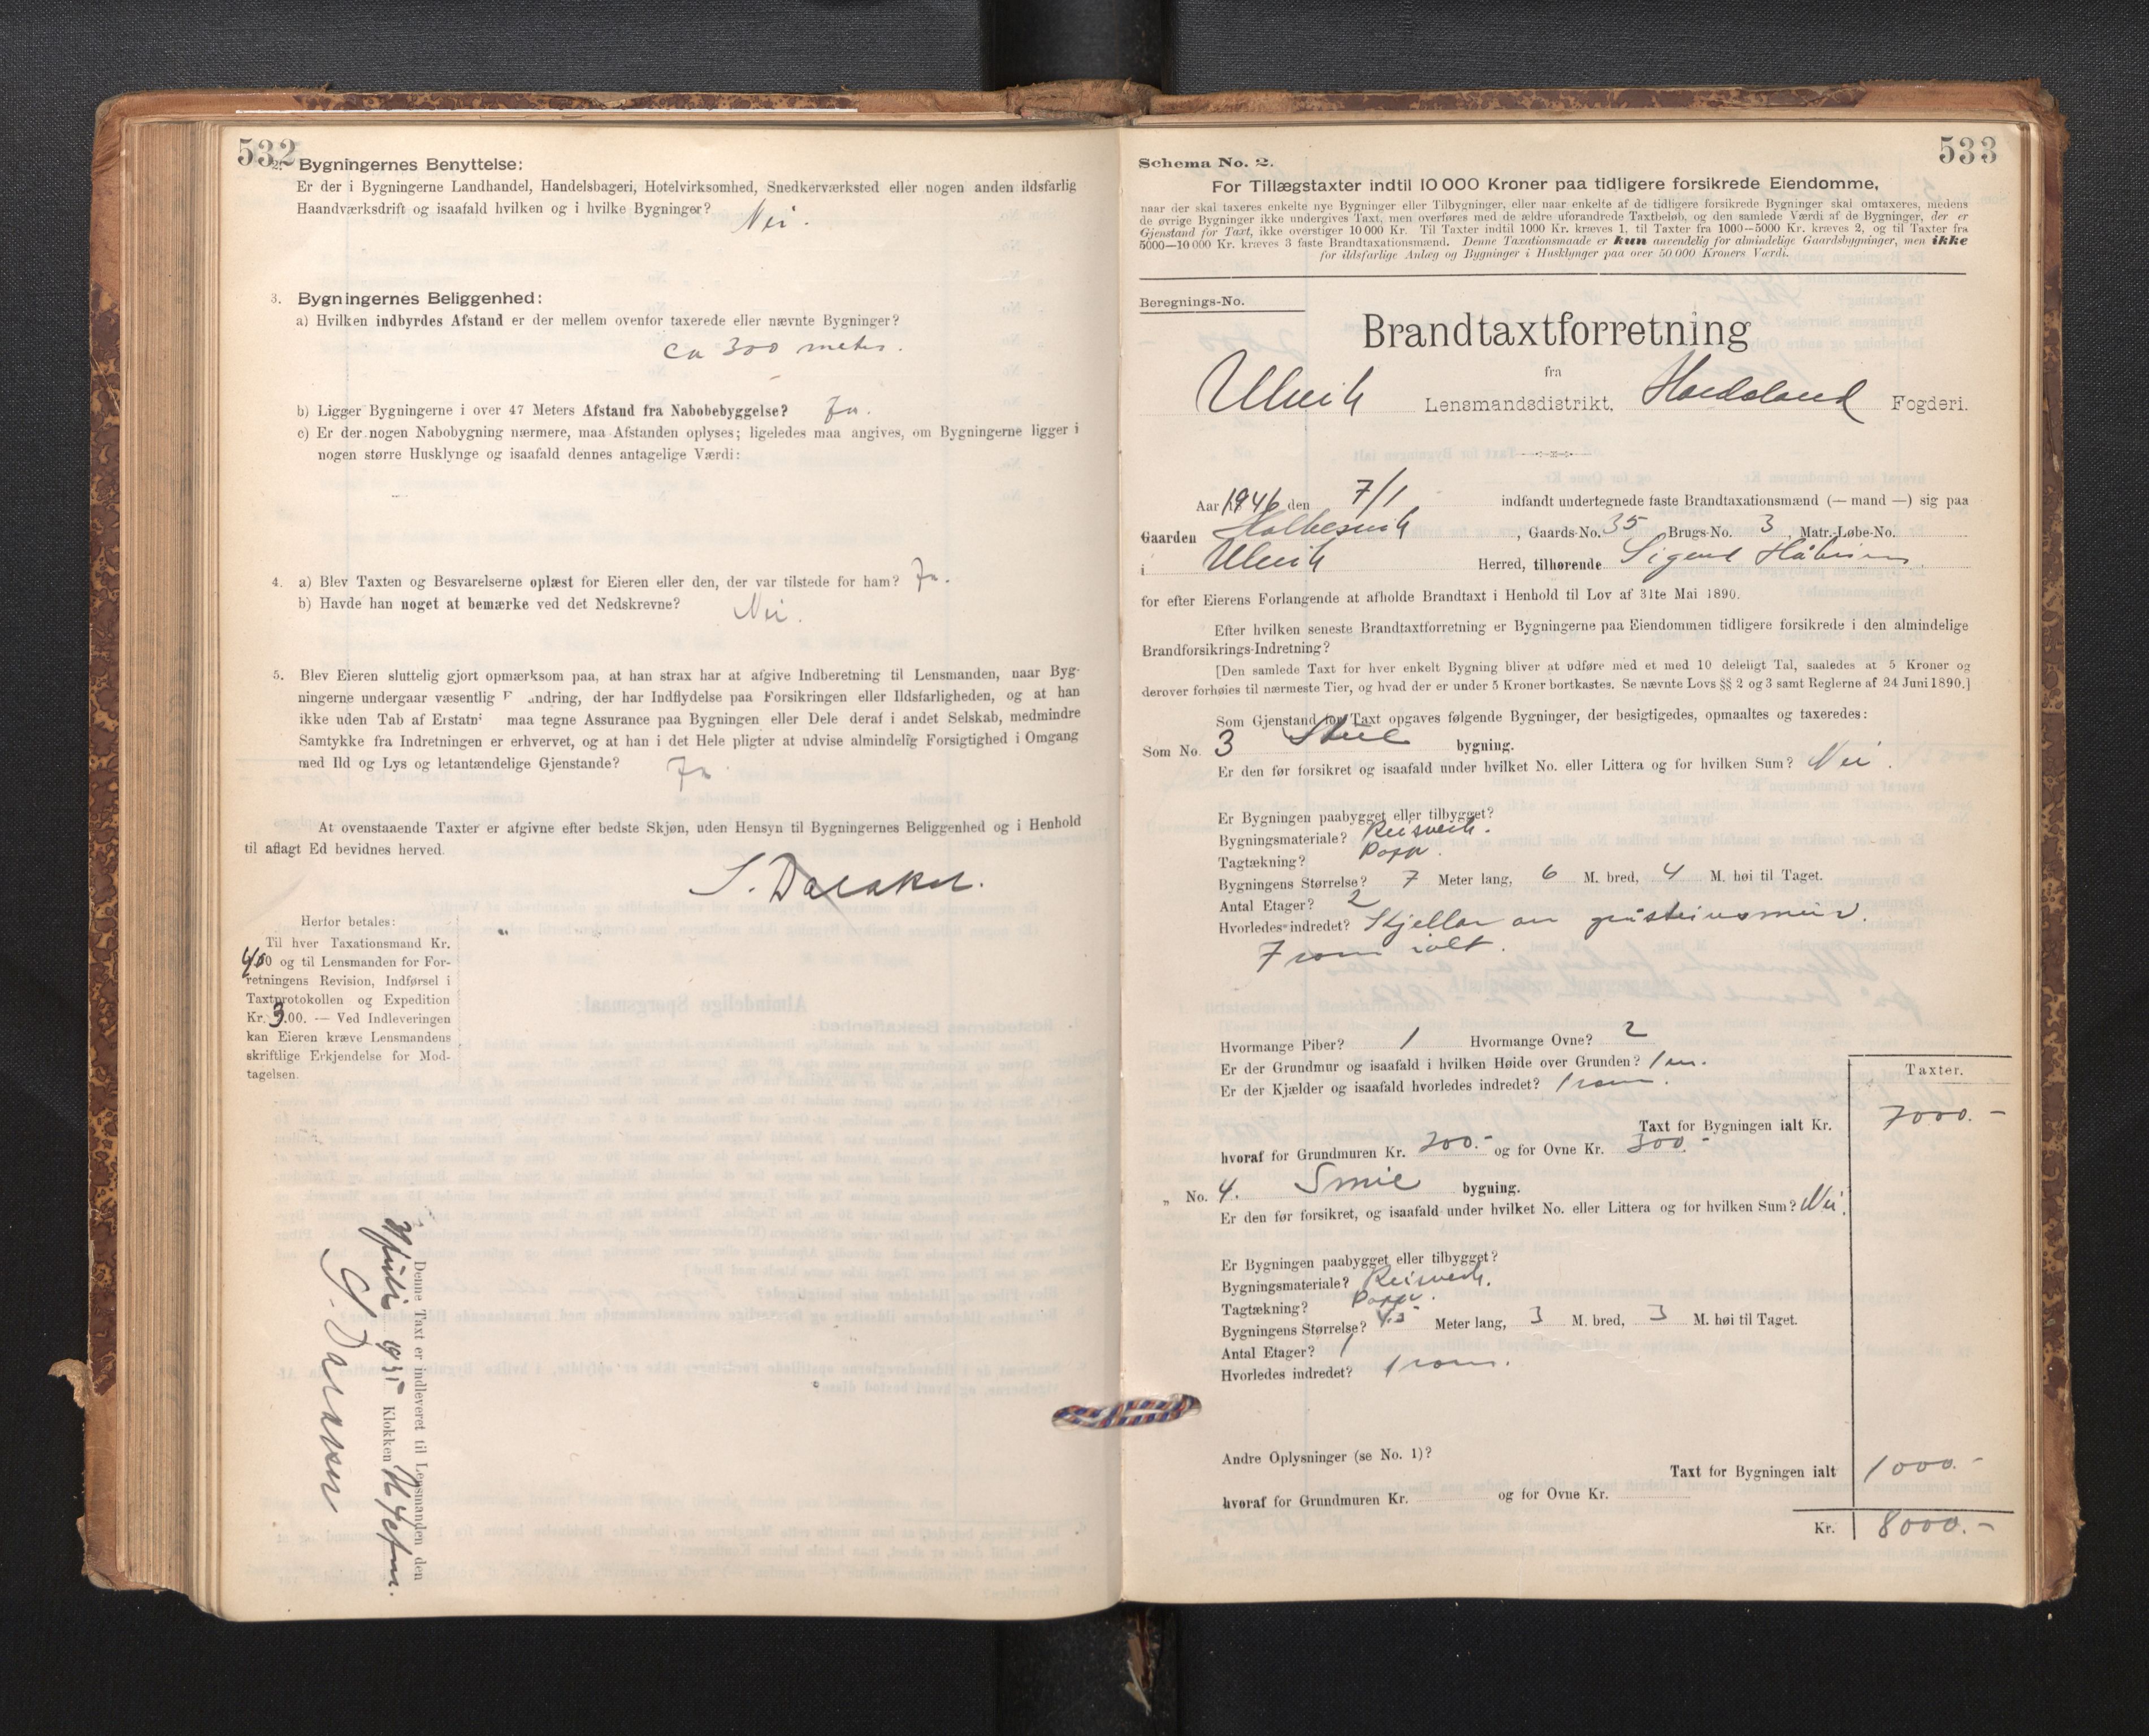 532
2. Bygningernes Benyttelse:
Er der i Bygningerne Landhandel, Handelsbageri, Hotelvirksomhed, Snedkerværksted eller nogen anden ildsfarlig
Haandværksdrift og isaafald hvilken og i hvilke Bygninger? Nei.
3. Bygningernes Beliggenhed:
a) Hvilken indbyrdes Afstand er der mellem ovenfor taxerede eller nævnte Bygninger?
ca 300 meter.
b) Ligger Bygningerne i over 47 Meters Afstand fra Nabobebyggelse? Ja.
c) Er der nogen Nabobygning nærmere, maa Afstanden oplyses; ligeledes maa angives, om Bygningerne ligger i
nogen større Husklynge og isaafald dennes antagelige Værdi:
4. a) Blev Taxten og Besvarelserne oplæst for Eieren eller den, der var tilstede for ham? Ja.
b) Havde han noget at bemærke ved det Nedskrevne? Nei.
5. Blev Eieren sluttelig gjort opmærksom paa, at han strax har at afgive Indberetning til Lensmanden, naar Byg-
ningerne undergaar væsentlig F andring, der har Indflydelse paa Forsikringen eller Ildsfarligheden, og at han
ikke uden Tab af Erstatn maa tegne Assurance paa Bygningen eller Dele deraf i andet Selskab, medmindre
Samtykke fra Indretningen er erhvervet, og at han i det Hele pligter at udvise almindelig Forsigtighed i Omgang
med Ild og Lys og letantændelige Gjenstande? Ja
At ovenstaaende Taxter er afgivne efter bedste Skjøn, uden Hensyn til Bygningernes Beliggenhed og i Henhold
til aflagt Ed bevidnes herved.
Herfor betales:
Til hver Taxationsmand Kr.
00 og til Lensmanden for For-
retningens Revision, Indførsel i
Taxtprotokollen og Expedition
Kr. 3.00. — Ved Indleveringen
kan Eieren kræve Lensmandens
skriftlige Erkjendelse for Mod-
tagelsen.
Denne Taxt er indleveret til Lensmanden den
juli 1935 Klokken
533
Schema No. 2.
For Tillægstaxter indtil 10 000 Kroner paa tidligere forsikrede Eiendomme,
naar der skal taxeres enkelte nye Bygninger eller Tilbygninger, eller naar enkelte af de tidligere forsikrede Bygninger skal omtaxeres, medens
de øvrige Bygninger ikke undergives Taxt, men overføres med de ældre uforandrede Taxtbeløb, og den samlede Værdi af de Bygninger, der er
Gjenstand for Taxt, ikke overstiger 10 000 Kr. Til Taxter indtil 1000 Kr. kræves 1, til Taxter fra 1000—5000 Kr. kræves 2, og til Taxter fra
5000—10 000 Kr. kræves 3 faste Brandtaxationsmænd. Denne Taxationsmaade er kun anvendelig for almindelige Gaardsbygninger, men ikke
for ildsfarlige Anlæg og Bygninger i Husklynger paa over 50 000 Kroners Værdi.
Beregnings-No.
Brandtaxtforretning
fra
Ulvik Lensmandsdistrikt, Hordaland Fogderi.
Aar 1946 den 7/1 indfandt undertegnede faste Brandtaxationsmænd (— mand —) sig paa
Gaarden Holkesvik, Gaards-No. 35 Brugs-No. 3, Matr.-Løbe-No.
i Ulvik Herred, tilhørende Sigurd
for efter Eierens Forlangende at afholde Brandtaxt i Henhold til Lov af 31te Mai 1890.
Efter hvilken seneste Brandtaxtforretning er Bygningerne paa Eiendommen tidligere forsikrede i den almindelige
Brandforsikrings-Indretning?
[Den samlede Taxt for hver enkelt Bygning bliver at udføre med et med 10 deleligt Tal, saaledes at 5 Kroner og
derover forhøies til nærmeste Tier, og hvad der er under 5 Kroner bortkastes. Se nævnte Lovs §§ 2 og 3 samt Reglerne af 24 Juni 1890.]
Som Gjenstand for Taxt opgaves følgende Bygninger, der besigtigedes, opmaaltes og taxeredes:
Som No. 3 bygning.
Er den før forsikret og isaafald under hvilket No. eller Littera og for hvilken Sum? Nei.
Er Bygningen paabygget eller tilbygget?
Bygningsmateriale? Reisverk.
Tagtækning? Papp.
Bygningens Størrelse? 7 Meter lang, 6 M. bred, 4 M. høi til Taget.
Antal Etager? 2
Hvorledes indredet? Kjellar av gråsteinsmur.
7 rom ialt.
Hvormange Piber? 1 Hvormange Ovne? 2
Er der Grundmur og isaafald i hvilken Høide over Grunden? 1 m.
Er der Kjælder og isaafald hvorledes indredet? 1 rom.
Taxter.
Taxt for Bygningen ialt Kr. 7000.-
hvoraf for Grundmuren Kr. 200.- og for Ovne Kr. 300.-
„ No. 4. Smie bygning.
Er den før forsikret, og isaafald under hvilket No. eller Littera og for hvilken Sum? Nei.
Er Bygningen paabygget eller tilbygget?
Bygningsmateriale? Reisverk.
Tagtækning? Papp.
Bygningens Størrelse? 4.5 Meter lang, 3 M. bred, 3 M. høi til Taget.
Antal Etager? 1
Hvorledes indredet? 1 rom.
Andre Oplysninger (se No. 1)?
Taxt for Bygningen ialt 1000.-
hvoraf for Grundmuren Kr. og for Ovne Kr.
Kr. 8000.-